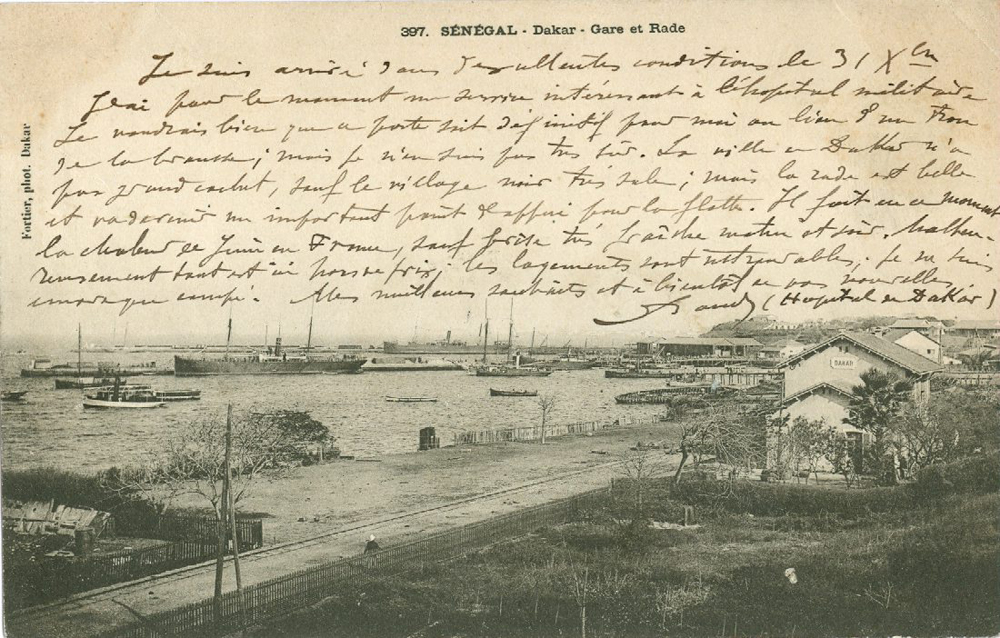 397. SÉNÉGAL - Dakar - Gare et Rade
Je suis arrivé dans d'excellentes conditions le 31 Xbre
J'ai pour le moment un service intéressant à l'hôpital militaire
Je voudrais bien que ce poste soit définitif pour moi au lieu d'un trou
de la brousse ; mais je n'en suis pas très sûr. La ville de Dakar n'a
pas grand cachet, sauf le village noir très sale ; mais la rade est belle
et va devenir un important point d'appui pour la flotte. Il fait en ce moment
la chaleur de Juin en France, sauf brise très fraîche matin et soir. Malheu-
reusement tout est ici hors de prix ; les logements sont introuvables ; je ne suis
encore que campé. Mes meilleurs souhaits et à bientôt de vos nouvelles
(Hôpital de Dakar)
Fortier, phot. Dakar
DAKAR